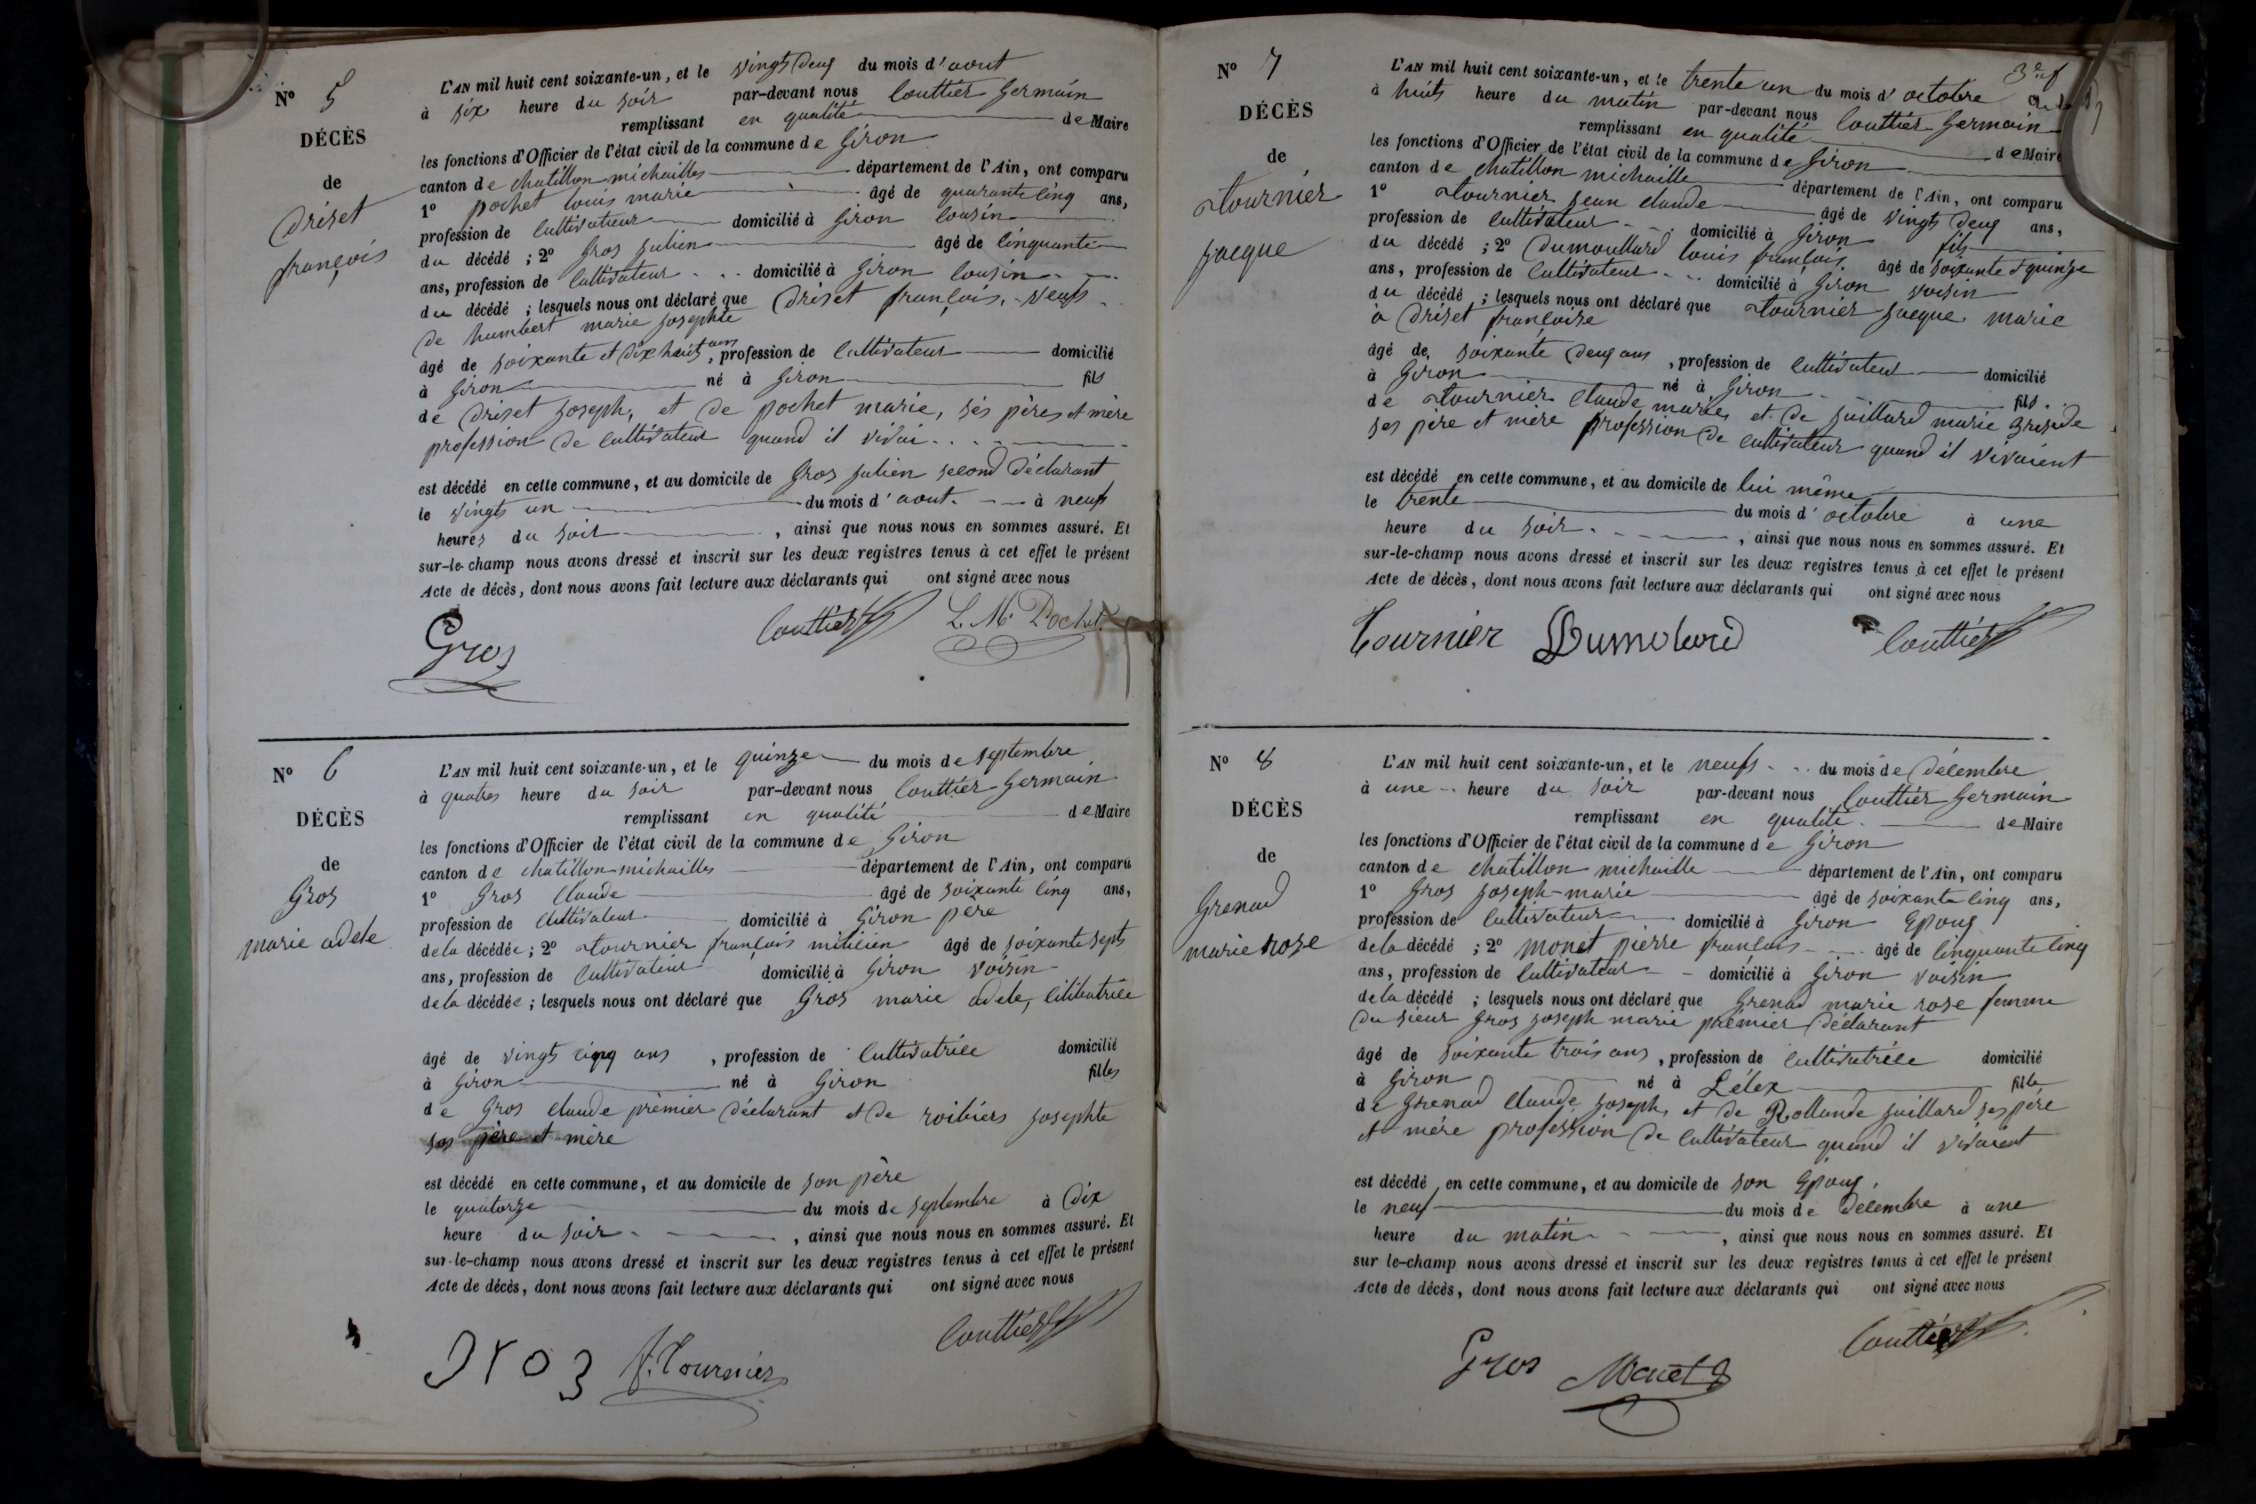 N° 5
DÉCÈS
de
Driset
françois
L'AN mil huit cent soixante-un, et le vingts deux du mois d'aout
à six heure du soir par-devant nous Couttier Germain
remplissant en qualité de Maire
les fonctions d'Officier de l'état civil de la commune de Giron
canton de chatillon michailles département de l'Ain, ont comparu
1° pochet louis marie âgé de quarante cinq ans,
profession de cultivateur domicilié à Giron cousin
du décédé ; 2° Gros julien âgé de cinquante
ans, profession de cultivateur domicilié à Giron cousin
du décédé ; lesquels nous ont déclaré que Driset françois, veufs
de humbert marie josephte
âgé de soixante et dix huit ans, profession de cultivateur domicilié
à Giron né à Giron fils
de Driset joseph, et de pochet marie, sés pères et mère
profession de cultivateur quand il vivai
est décédé en cette commune, et au domicile de Gros julien second déclarant
le vingts un du mois d'aout à neufs
heures du soir, ainsi que nous nous en sommes assuré. Et
sur-le-champ nous avons dressé et inscrit sur les deux registres tenus à cet effet le présent
Acte de décès, dont nous avons fait lecture aux déclarants qui ont signé avec nous
Gros Couttier L. M. Pochet
N° 6
DÉCÈS
de
Gros
marie adele
L'AN mil huit cent soixante-un, et le quinze du mois de septembre
à quatres heure du soir par-devant nous Couttier Germain
remplissant en qualité de Maire
les fonctions d'Officier de l'état civil de la commune de Giron
canton de chatillon michailles département de l'Ain, ont comparu
1° Gros claude âgé de soixante cinq ans,
profession de cultivateur domicilié à Giron père
de la décédée ; 2° tournier françois âgé de soixante septs
ans, profession de cultivateur domicilié à Giron voisin
de la décédée ; lesquels nous ont déclaré que Gros marie adele, célibatrice
âgé de vingts cinq ans, profession de cultivatrice domicilié
à Giron né à Giron filles
de Gros claude prémier déclarant et de roibiers josephte
ses père et mère
est décédé en cette commune, et au domicile de son père
le quatorze du mois de septembre à Dix
heure du soir, ainsi que nous nous en sommes assuré. Et
sur-le-champ nous avons dressé et inscrit sur les deux registres tenus à cet effet le présent
Acte de décès, dont nous avons fait lecture aux déclarants qui ont signé avec nous
gros f. Tournier Couttier
N° 7
DÉCÈS
de
tournier
jacque
L'AN mil huit cent soixante-un, et le trente un du mois d'octobre
à huits heure du matin par-devant nous Couttier Germain
remplissant en qualité de Maire
les fonctions d'Officier de l'état civil de la commune de Giron
canton de chatillon michaille département de l'Ain, ont comparu
1° tournier jean claude âgé de vingts deux ans,
profession de cultivateur domicilié à Giron fils
du décédé ; 2° Dumoullard louis françois âgé de soixante et quinze
ans, profession de cultivateur domicilié à Giron voisin
du décédé ; lesquels nous ont déclaré que tournier jacque marie
à Driset françoise
âgé de soixante deux ans, profession de cultivateur domicilié
à Giron né à Giron fils
de tournier claude marie, et de juillard marie
ses père et mère profession de cultivateur quand il vivaient
est décédé en cette commune, et au domicile de lui même
le trente du mois d'octobre à une
heure du soir, ainsi que nous nous en sommes assuré. Et
sur-le-champ nous avons dressé et inscrit sur les deux registres tenus à cet effet le présent
Acte de décès, dont nous avons fait lecture aux déclarants qui ont signé avec nous
Tournier Dumolard Couttier
N° 8
DÉCÈS
de
Grenad
marie rose
L'AN mil huit cent soixante-un, et le neufs du mois de Décembre
à une heure du soir par-devant nous Couttier Germain
remplissant en qualité de Maire
les fonctions d'Officier de l'état civil de la commune de Giron
canton de chatillon michaille département de l'Ain, ont comparu
1° Gros joseph-marie âgé de soixante cinq ans,
profession de cultivateur domicilié à Giron Epoux
de la décédé ; 2° monet pierre françois âgé de cinquante cinq
ans, profession de cultivateur domicilié à Giron voisin
de la décédé ; lesquels nous ont déclaré que Grenad marie rose femme
du sieur Gros joseph marie prémier déclarant
âgé de soixante trois ans, profession de cultivatrice domicilié
à Giron né à Lélex fille
de Grenad claude joseph, et de Rollande juillard ses père
et mére profession de cultivateur quand il vivaient
est décédé en cette commune, et au domicile de son Epoux,
le neuf du mois de Décembre à une
heure du matin, ainsi que nous nous en sommes assuré. Et
sur le-champ nous avons dressé et inscrit sur les deux registres tenus à cet effet le présent
Acte de décès, dont nous avons fait lecture aux déclarants qui ont signé avec nous
Gros Monet Couttier